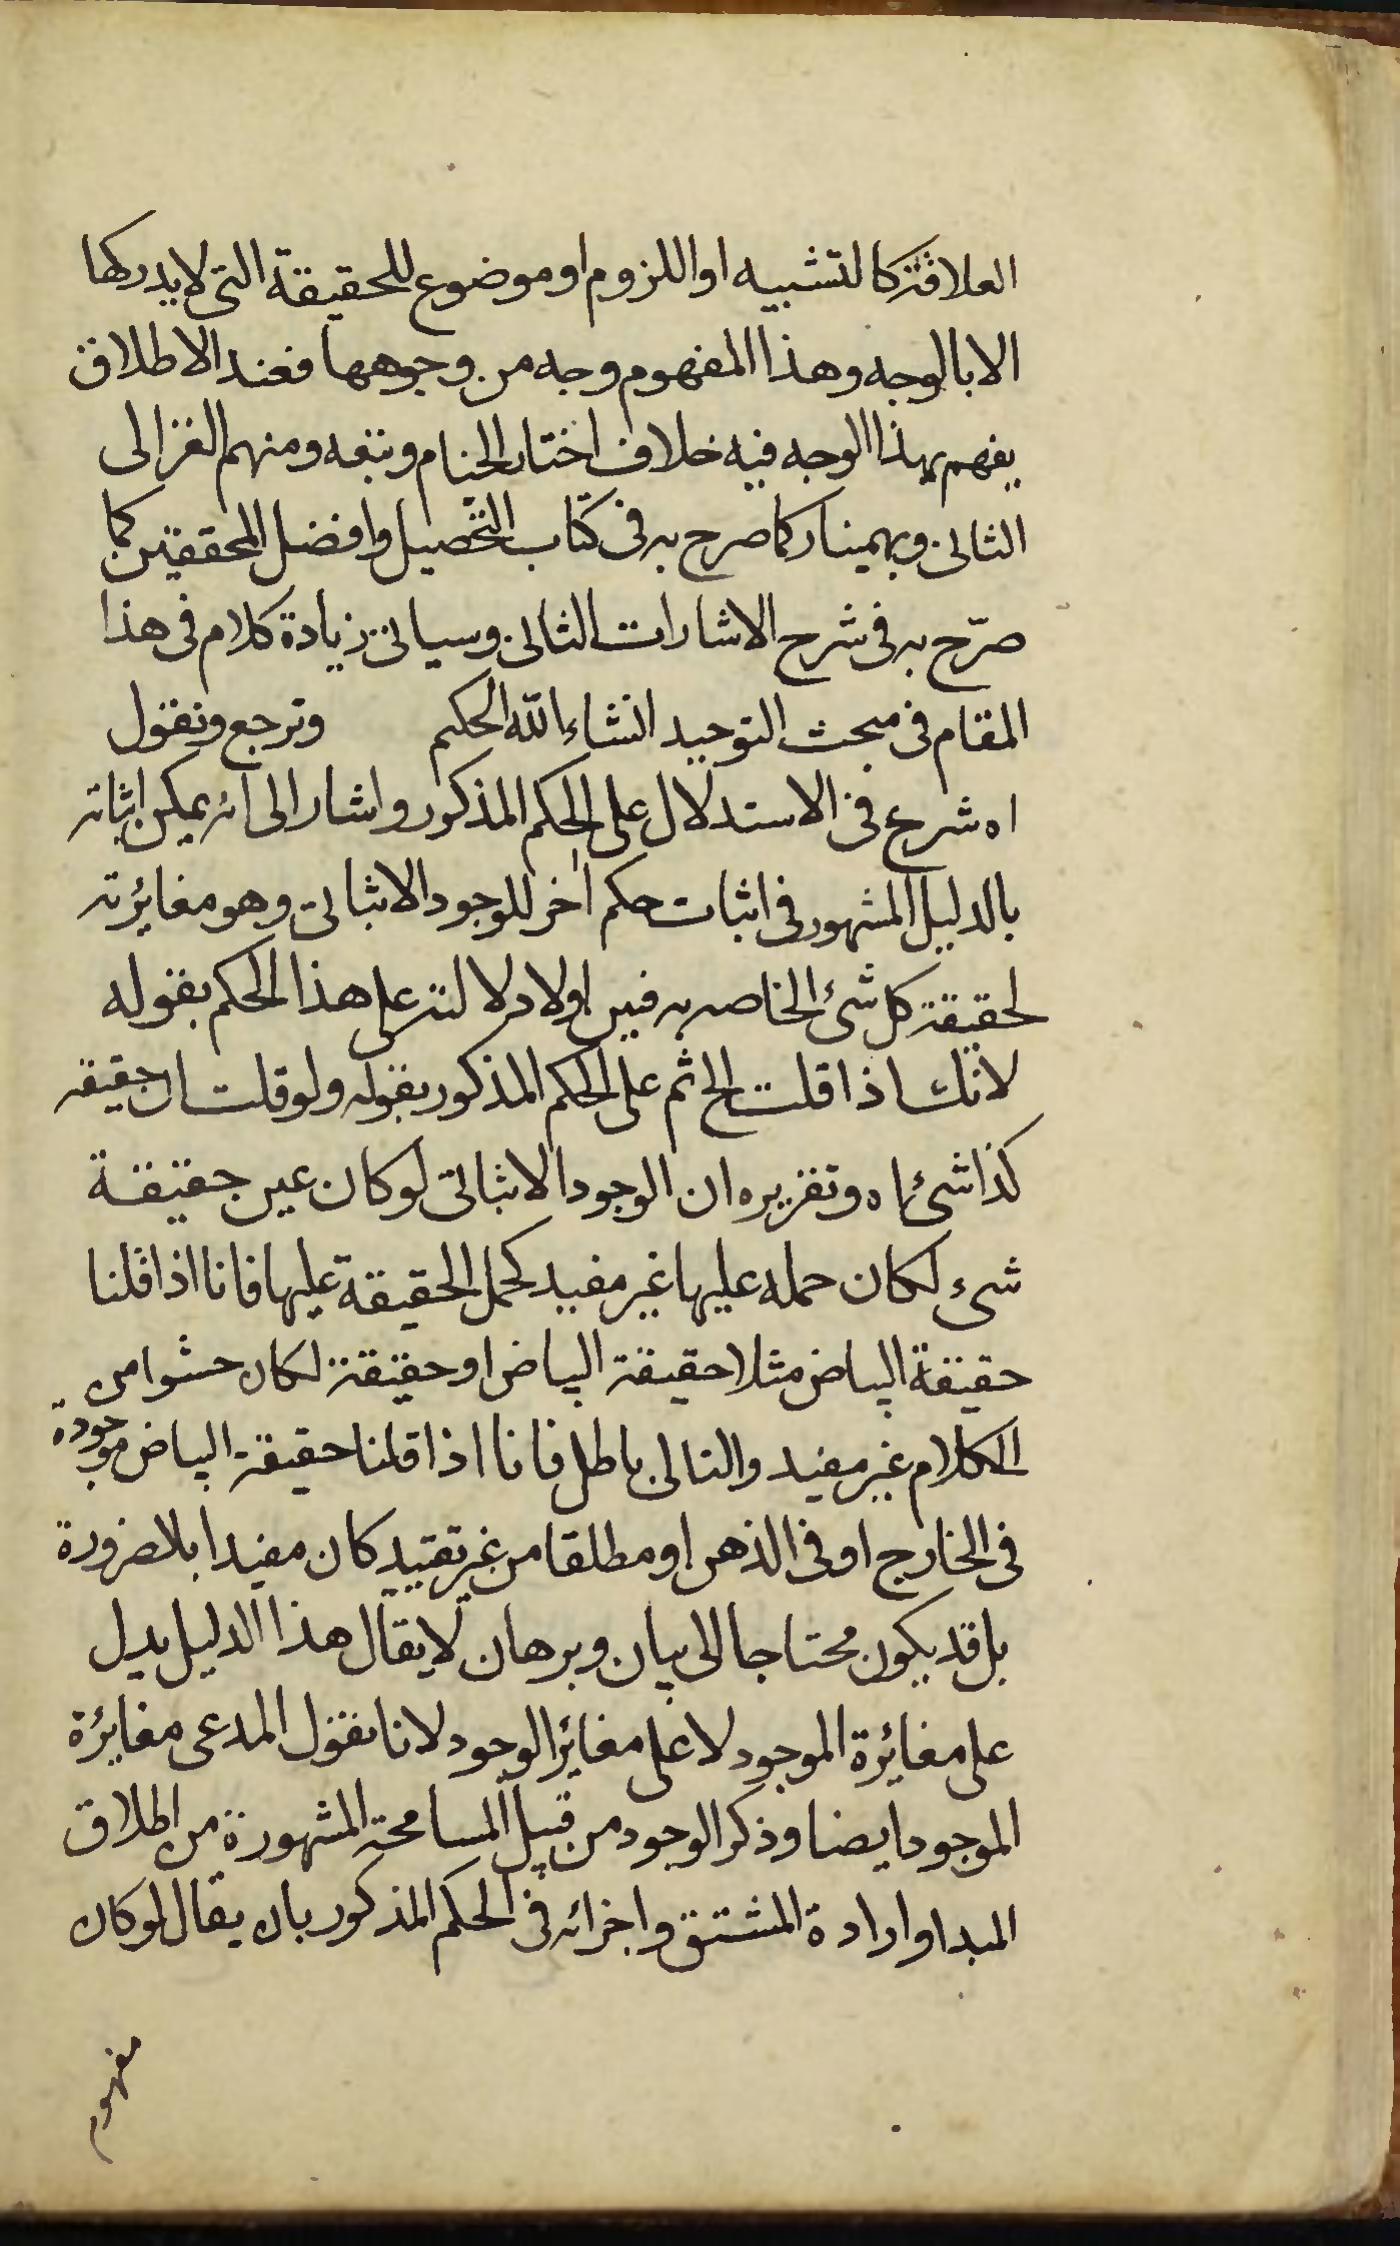 العلاقة كالتشبيه او اللزوم او موضوع للحقيقة التى لا يدركها
الا بالوجه وهذا المفهوم وجه من وجوهها فعند الاطلاق
يفهم بهذا الوجه فيه خلاف اختار الخيام وتبعه ومنهم الغزالى
الثانى وبهمينار كما صرح به فى كتاب التحصيل وافضل المحققين كما
صرّح به فى شرح الاشارات الثانى وسياتى زيادة كلام فى هذا
المقام فى مبحث التوحيد انشاء الله الحكيم ونرجع ونقول
اه شرع فى الاستدلال على الحكم المذكور واشار الى انه يمكن اثباته
بالدليل المشهور فى اثبات حكم اخر للوجود الاثباتى وهو مغائرته
لحقيقة كل شئ الخاصه به فبين اولا دلالته على هذا الحكم بقوله
لانك اذا قلت الخ ثم على الحكم المذكور بقوله ولو قلت ان حقيقه
كذا شئ اه وتقريره ان الوجود الاثباتى لو كان عين حقيقة
شىء لكان حمله عليها غير مفيد كحمل الحقيقة عليها فانا اذا قلنا
حقيقة البياض مثلا حقيقة البياض او حقيقة لكان حشوا من
الكلام غير مفيد والتالى باطل فانا اذا قلنا حقيقة البياض موجودة
فى الخارج او فى الذهن او مطلقا من غير تقييد كان مفيدا بلا ضرورة
بل قد يكون محتاجا الى بيان وبرهان لا يقال هذا الدليل يدل
على مغائرة الموجود لا على مغائر الوجود لانا نقول المدعى مغايرة
الموجود ايضا وذكر الوجود من قبيل المسامحة المشهورة من اطلاق
المبدا وارادة المشتق واجرائه فى الحكم المذكور بان يقال لو كان
مفهوم